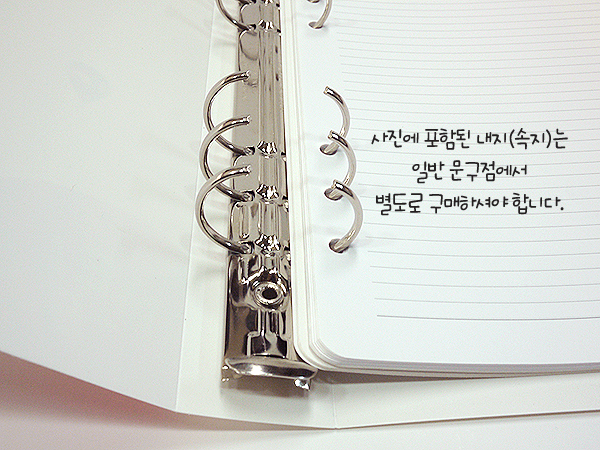 사진에 포함된 내지(속지)는
일반 문구점에서
별도로 구매하셔야 합니다.